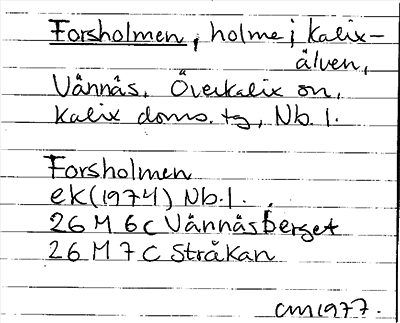 Forsholmen, holme i Kalix-
älven,
Vännäs, Överkalix sn,
Kalix doms. tg, Nb. l.
Forsholmen
ek (1974) Nb. l.
26 M 6 c Vännäsberget
26 M 7 c Stråkan
CM 1977.